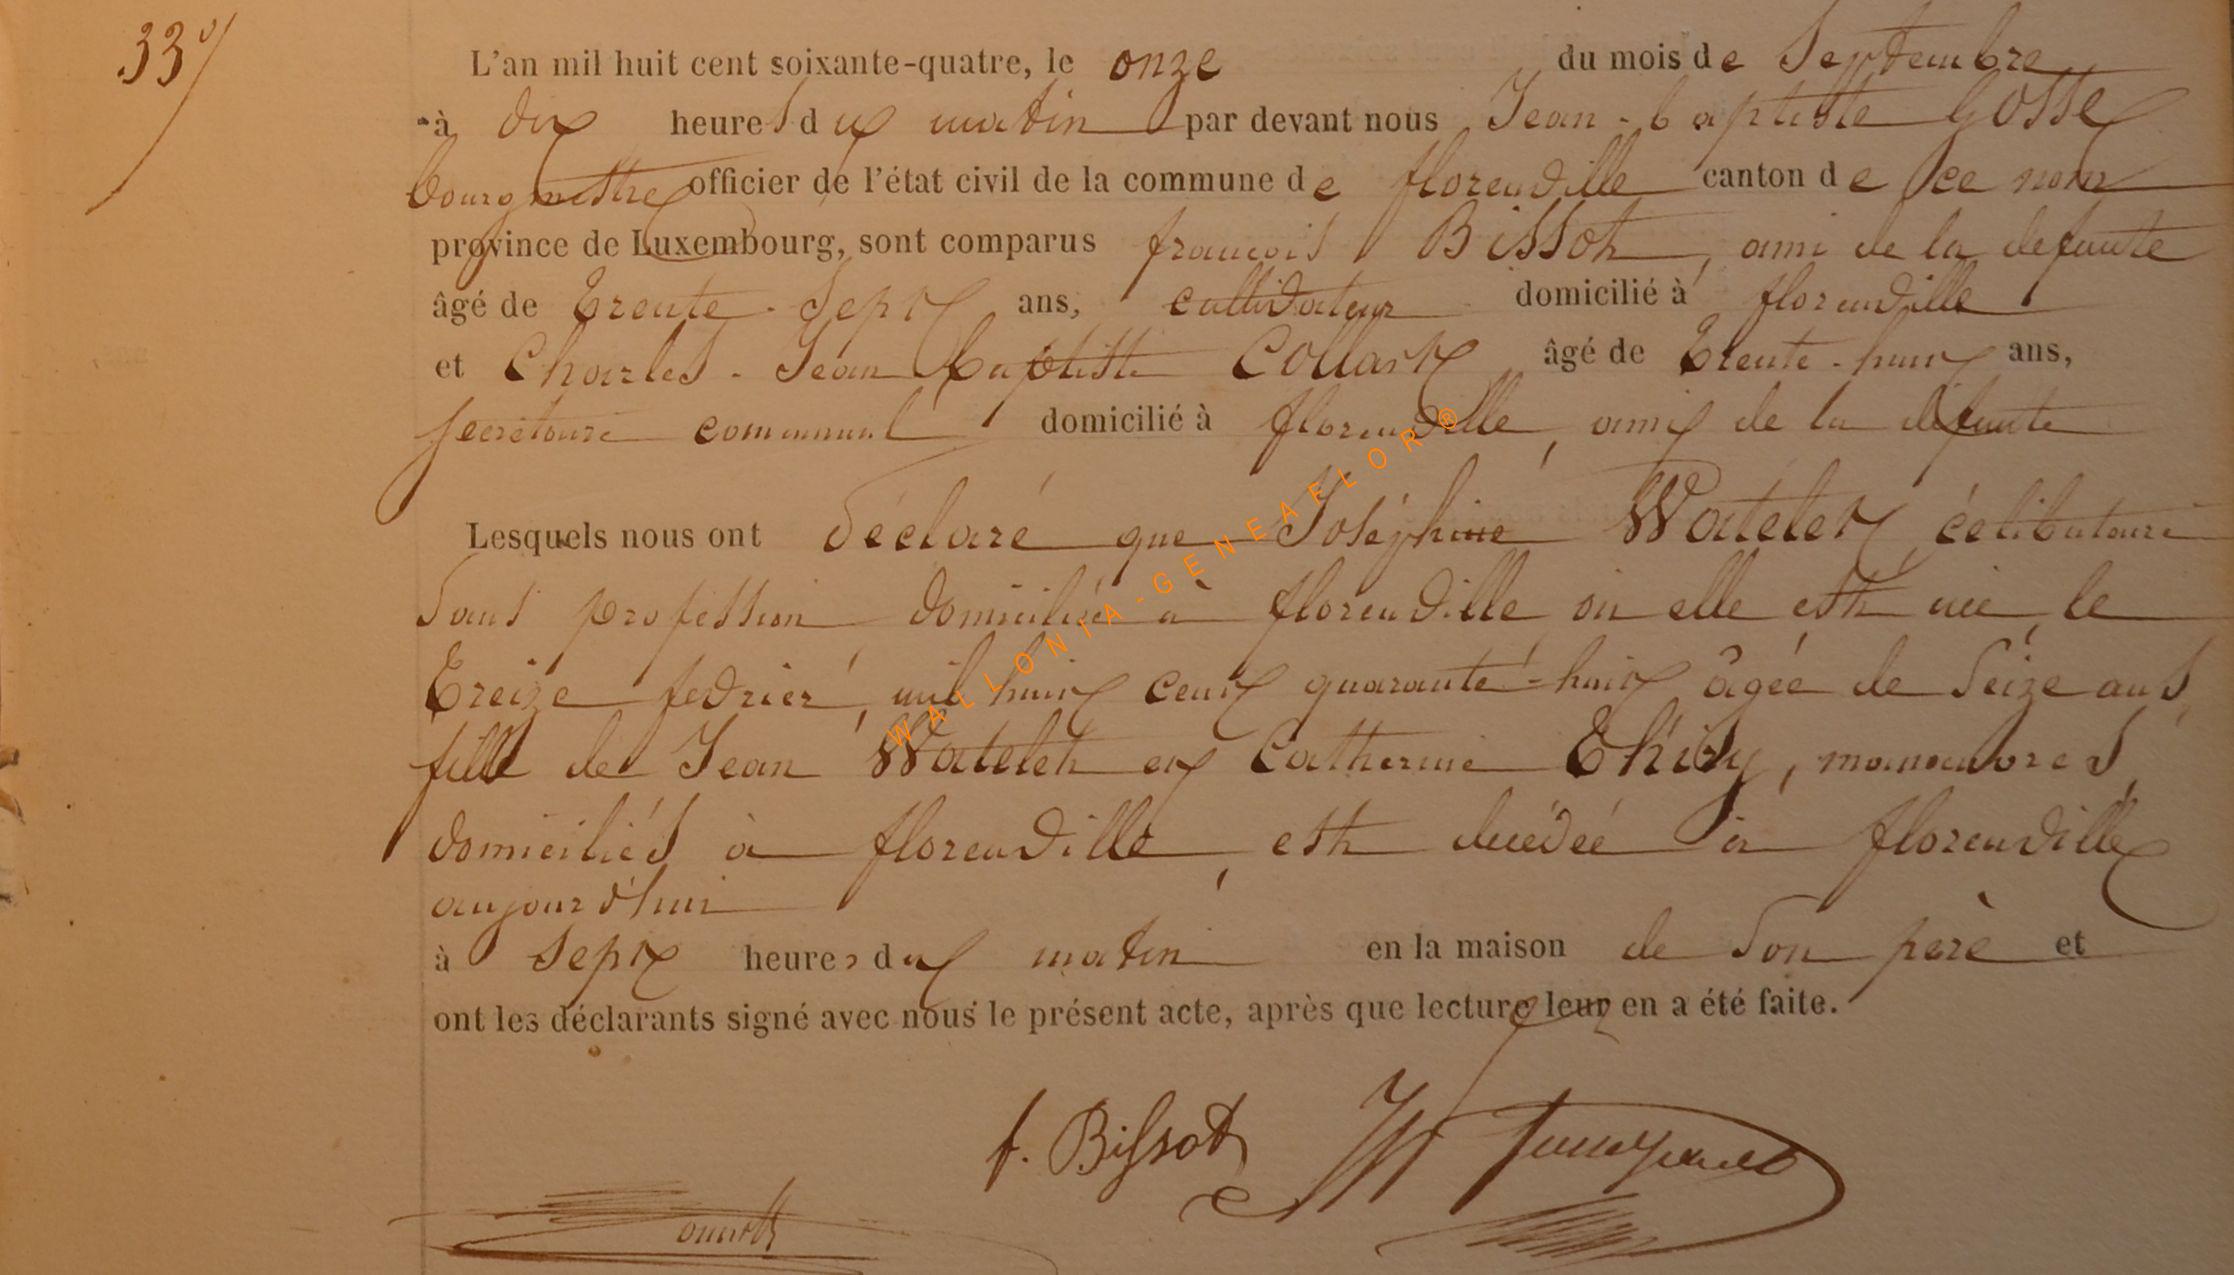 33
L'an mil huit cent soixante-quatre, le onze du mois de Septembre
à dix heures du matin par devant nous Jean-baptiste Gosse
bourgmestre officier de l'état civil de la commune de florenville canton de ce nom
province de Luxembourg, sont comparus françois Bissot, ami de la défunte
âgé de trente-sept ans, cultivateur domicilié à florenville
et Charles-Jean Baptiste Collart âgé de trente-huit ans,
secrétaire communal domicilié à florenville, ami de la défunte
Lesquels nous ont déclaré que Joséphine Watelet, célibataire
sans profession domiciliée à florenville où elle est née le
treize fevrier, mil huit cent quarante-huit, âgée de seize ans,
fille de Jean Watelet et Catherine Thiry, manoeuvres,
domiciliés à florenville, est décédée à florenville
aujourd'hui
à sept heures du matin en la maison de son père et
ont les déclarants signé avec nous le présent acte, après que lecture leur en a été faite.
f. Bissot
WALLONIA-GENEAFLOR®